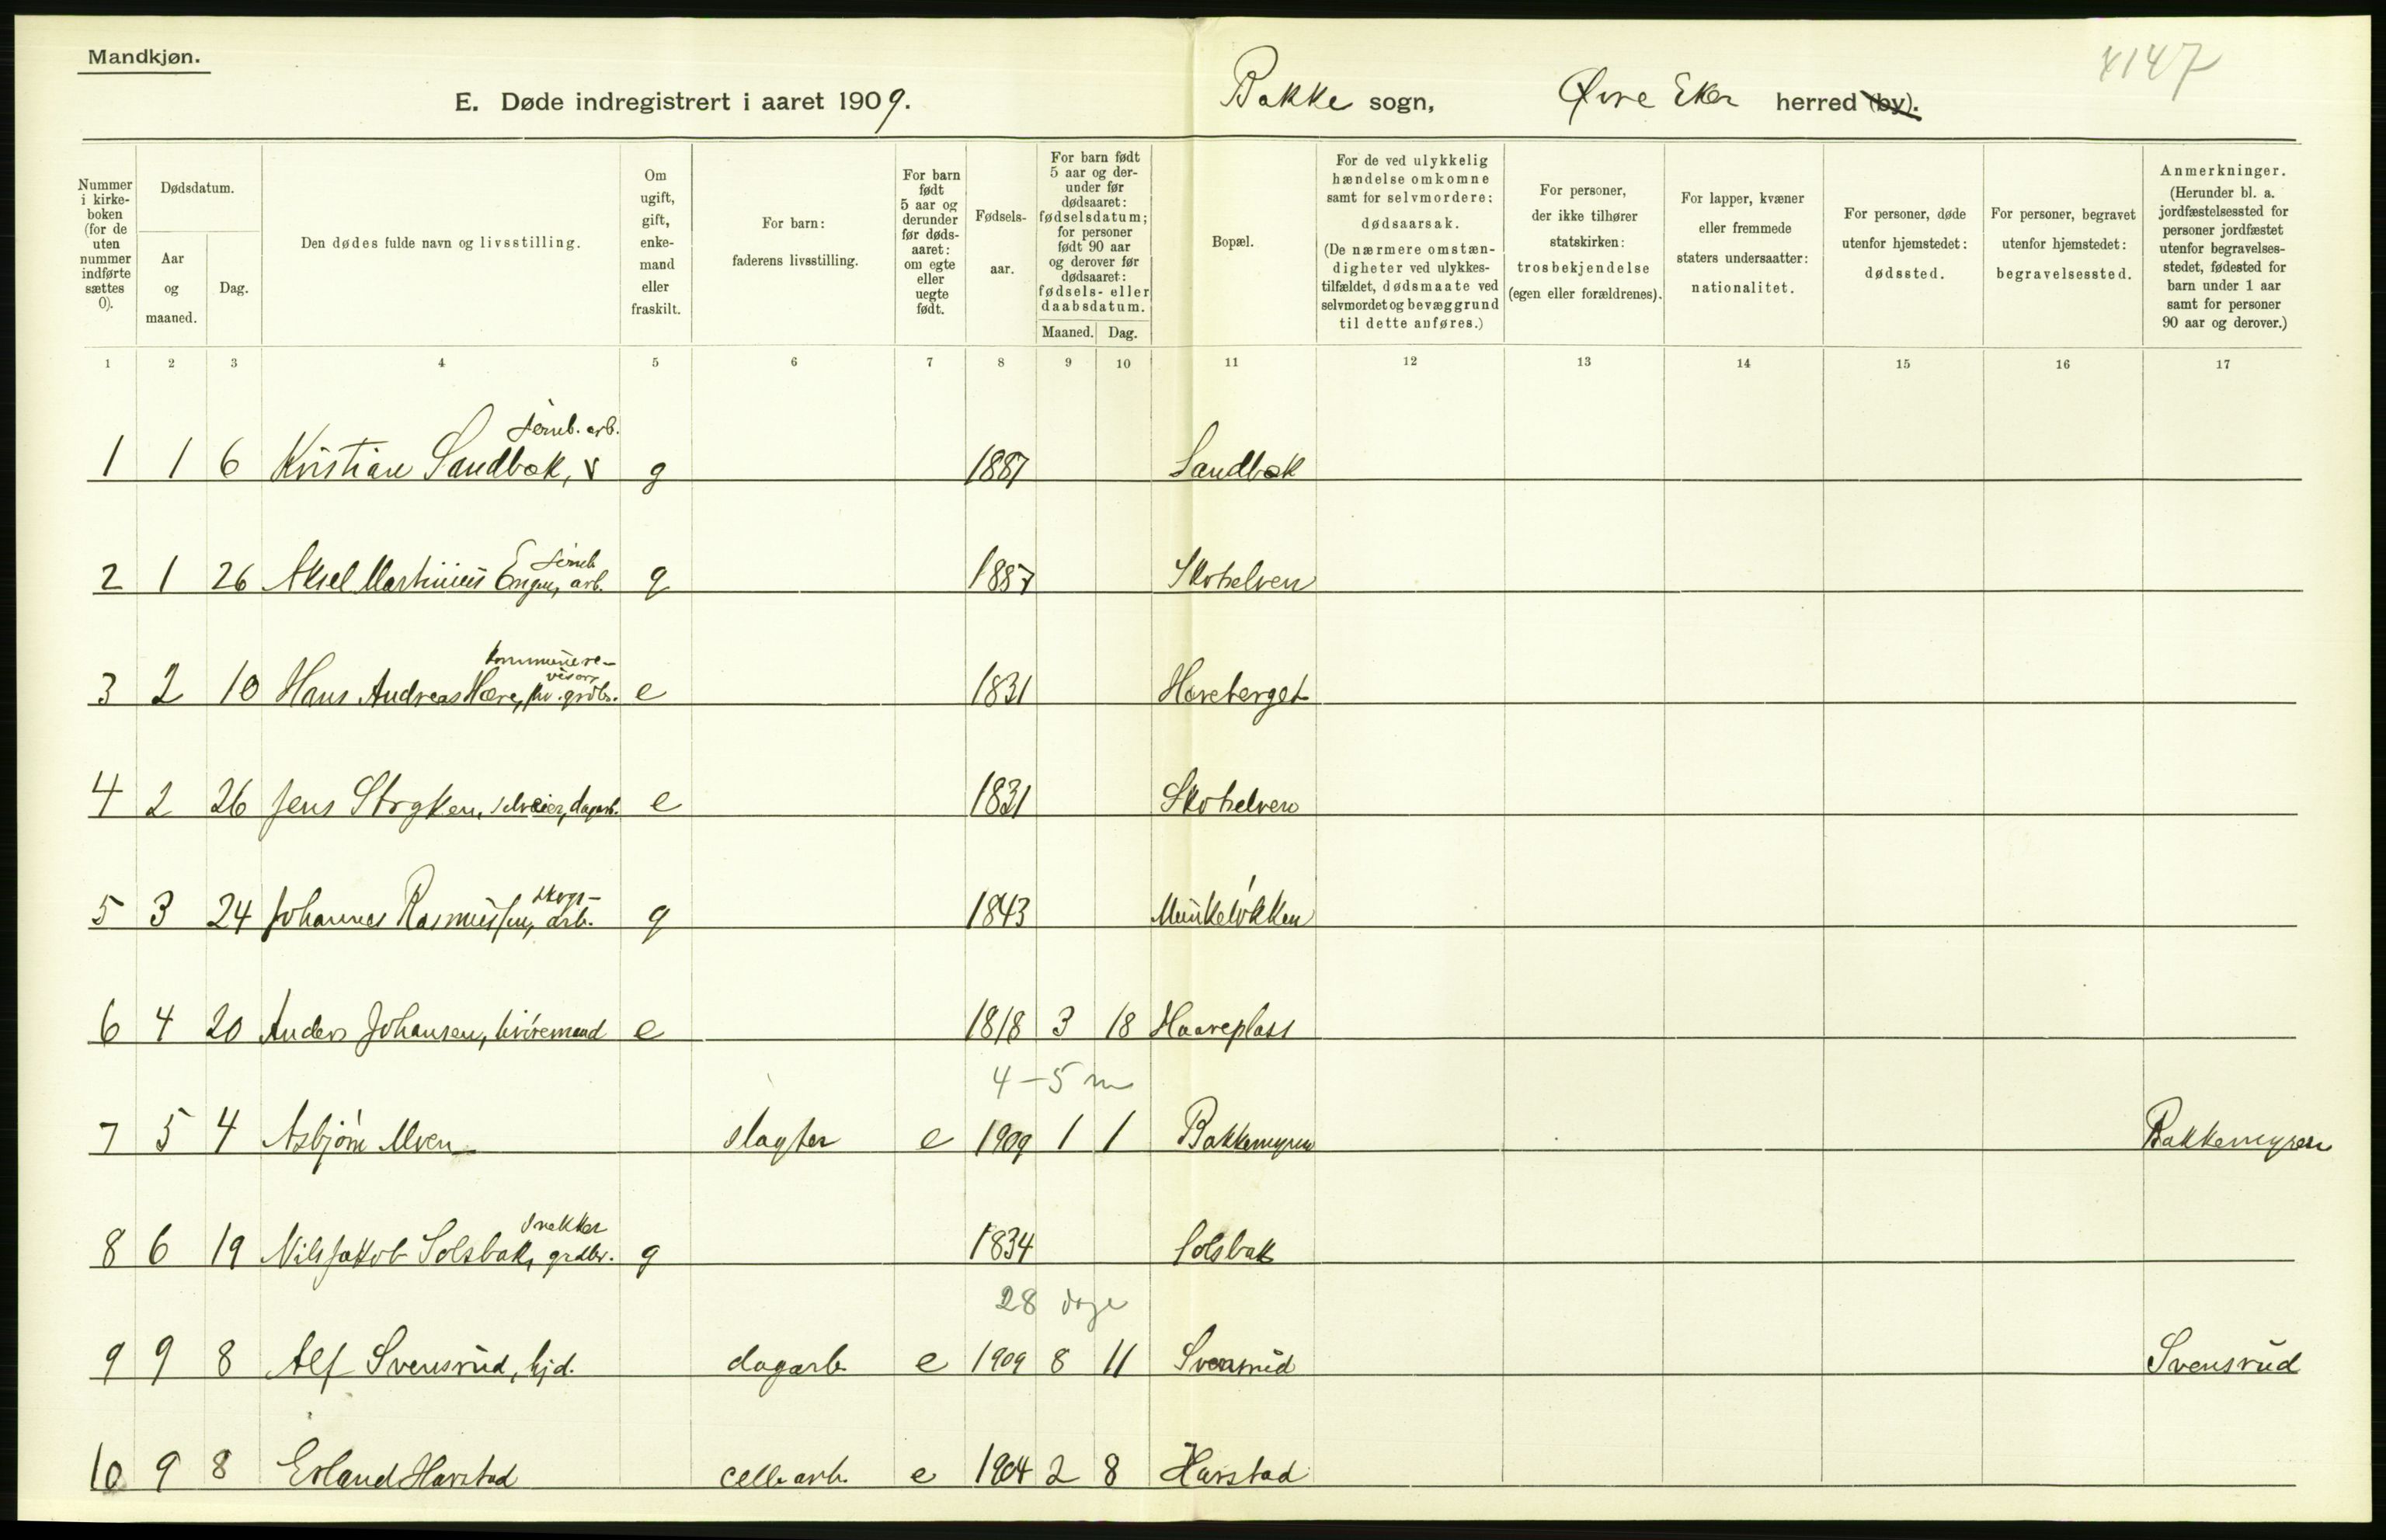 Mandkjøn.
4147
E. Døde indregistrert i aaret 1909.
Bakke sogn, Øvre Eker herred (by).
Nummer i kirke- boken (for de uten nummer indførte sættes 0).
Dødsdatum.
Aar og maaned.
Dag.
Den dødes fulde navn og livsstilling.
Om ugift, gift, enke- mand eller fraskilt.
For barn: faderens livsstilling.
For barn født 5 aar og derunder før døds- aaret: om egte eller uegte født.
Fødsels- aar.
For barn født 5 aar og der- under før dødsaaret: fødselsdatum; for personer født 90 aar og derover før dødsaaret: fødsels- eller daabsdatum.
Maaned. Dag.
Bopæl.
For de ved ulykkelig hændelse omkomne samt for selvmordere: dødsaarsak. (De nærmere omstæn- digheter ved ulykkes- tilfældet, dødsmaate ved selvmordet og bevæggrund til dette anføres.)
For personer, der ikke tilhører statskirken: trosbekjendelse (egen eller forældrenes).
For lapper, kvæner eller fremmede staters undersaatter: nationalitet.
For personer, døde utenfor hjemstedet: dødssted.
For personer, begravet utenfor hjemstedet: begravelsessted.
Anmerkninger. (Herunder bl. a. jordfæstelsessted for personer jordfæstet utenfor begravelses- stedet, fødested for barn under 1 aar samt for personer 90 aar og derover.)
1 2 3 4 5 6 7 8 9 10 11 12 13 14 15 16 17
jernb. arb.
1 1 6 Kristian Sandbæk, g 1887 Sandbæk
jernb
2 1 26 Aksel Martinius Engen, arb. g 1887 Skotselven
kommunere-
visor,
3 2 10 Hans Andreas Hære, fhv. grdbr. e 1831 Hæreberget
4 2 26 Jens Stryken, selveier, dagarb. e 1831 Skotselven
skogs-
5 3 24 Johannes Rasmussen, arb. g 1843 Munkeløkken
6 4 20 Anders Johansen, livøremand e 1818 3 18 Haareplass
4 - 5 m
7 5 4 Asbjørn Moen slagter e 1909 1 1 Bakkemyren Bakkemyren
snekker
8 6 19 Nils Jakob Solsbak, grdbr. g 1834 Solsbak
28 dage
9 9 8 Alf Svensrud, hjd. dagarb. e 1909 8 11 Svensrud Svensrud
10 9 8 Erland Harstad cellarb. e 1904 2 8 Harstad